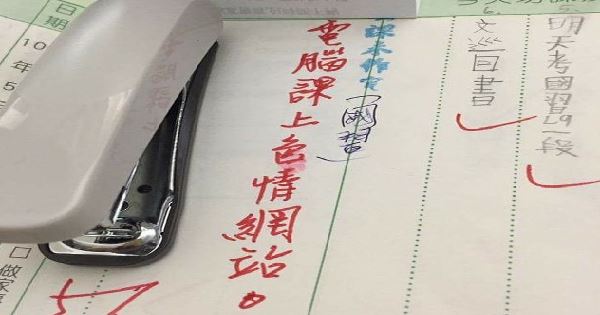 明天考國習L9一段
文巡回書
本作
(國習)
電腦課上色情網站。
日期
10
年
5
做家